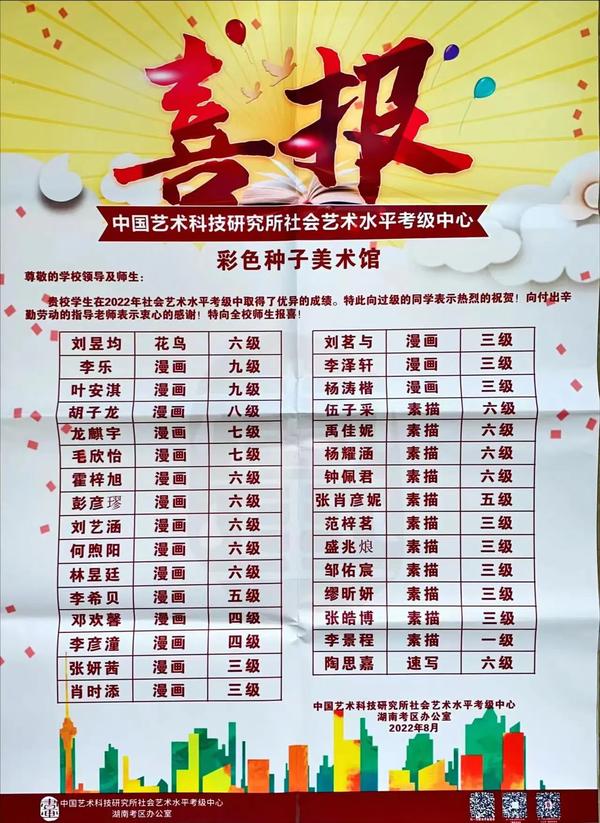 喜报
中国艺术科技研究所社会艺术水平考级中心
彩色种子美术馆
尊敬的学校领导及师生：
贵校学生在2022年社会艺术水平考级中取得了优异的成绩。特此向过级的同学表示热烈的祝贺！向付出辛
勤劳动的指导老师表示衷心的感谢！特向全校师生报喜！
刘昱均 花鸟 六级
李乐 漫画 九级
叶安淇 漫画 九级
胡子龙 漫画 八级
龙麒宇 漫画 七级
毛欣怡 漫画 七级
霍梓旭 漫画 六级
彭彦璆 漫画 六级
刘艺涵 漫画 六级
何煦阳 漫画 六级
林昱廷 漫画 六级
李希贝 漫画 五级
邓欢馨 漫画 四级
李彦潼 漫画 四级
张妍茜 漫画 三级
肖时添 漫画 三级
刘茗与 漫画 三级
李泽轩 漫画 三级
杨涛楷 漫画 三级
伍子采 素描 六级
禹佳妮 素描 六级
杨耀涵 素描 六级
钟佩君 素描 六级
张肖彦妮 素描 五级
范梓茗 素描 三级
盛兆烺 素描 三级
邹佑宸 素描 三级
缪昕妍 素描 三级
张皓博 素描 三级
李景程 素描 一级
陶思嘉 速写 六级
中国艺术科技研究所社会艺术水平考级中心
湖南考区办公室
2022年8月
中国艺术科技研究所社会艺术水平考级中心
湖南考区办公室